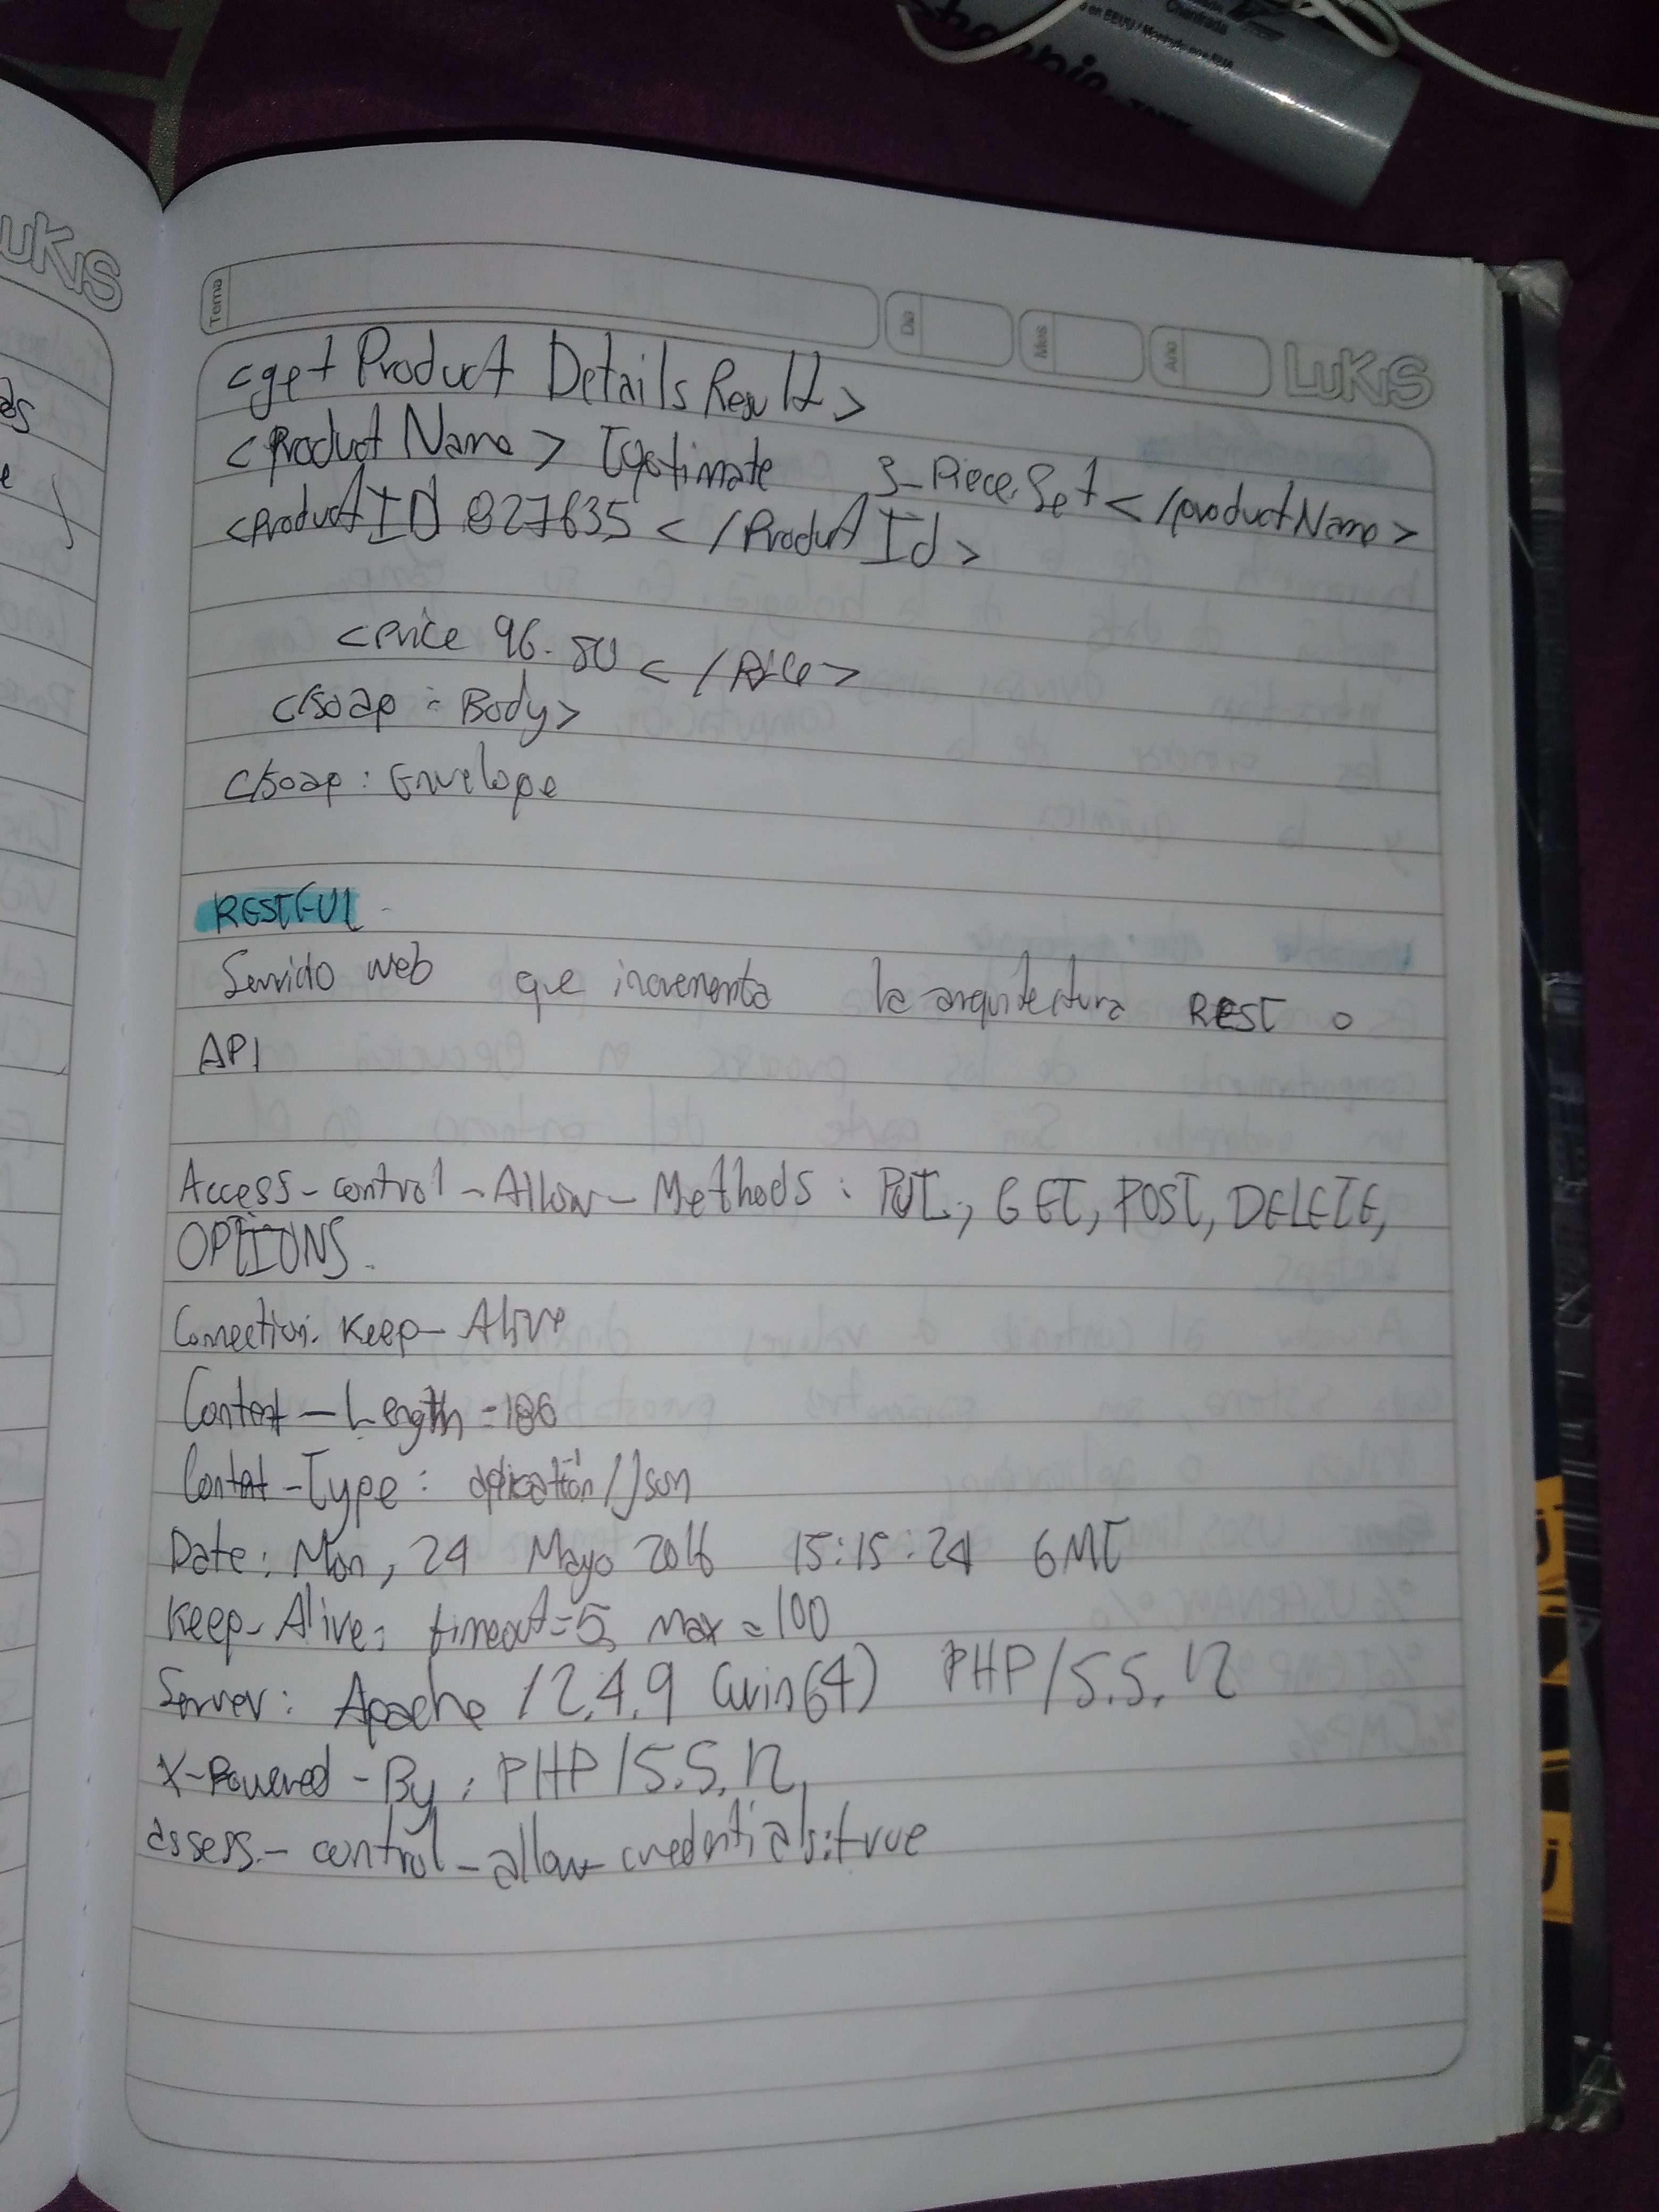 Shoppie TANK
o en EEUU / Montado por EMA
Chanfrada
LuKiS
Tema
Dia
Mes
Año
LuKiS
<get Product Details Result>
<Product Name> Tgotimate 3_Piece Set </productName>
<Product ID 827635 </Product Id>
<Price 96.50 </Price>
</soap : Body>
</soap : Envelope
RESTFUL
Servido web que incrementa la arquitectura REST o
API
Access-control-Allow-Methods: PUT, GET, POST, DELETE,
OPTIONS.
Connection: Keep-Alive
Content-Length=186
Content-Type: aplication/Json
Date: Mon, 24 Mayo 2016 15:15:24 GMT
Keep-Alive: timeout=5, max=100
Server: Apache /2.4.9 (win64) PHP/5.5.12
X-Powered-By: PHP/5.5.12,
assess-control-allow-credentials:true